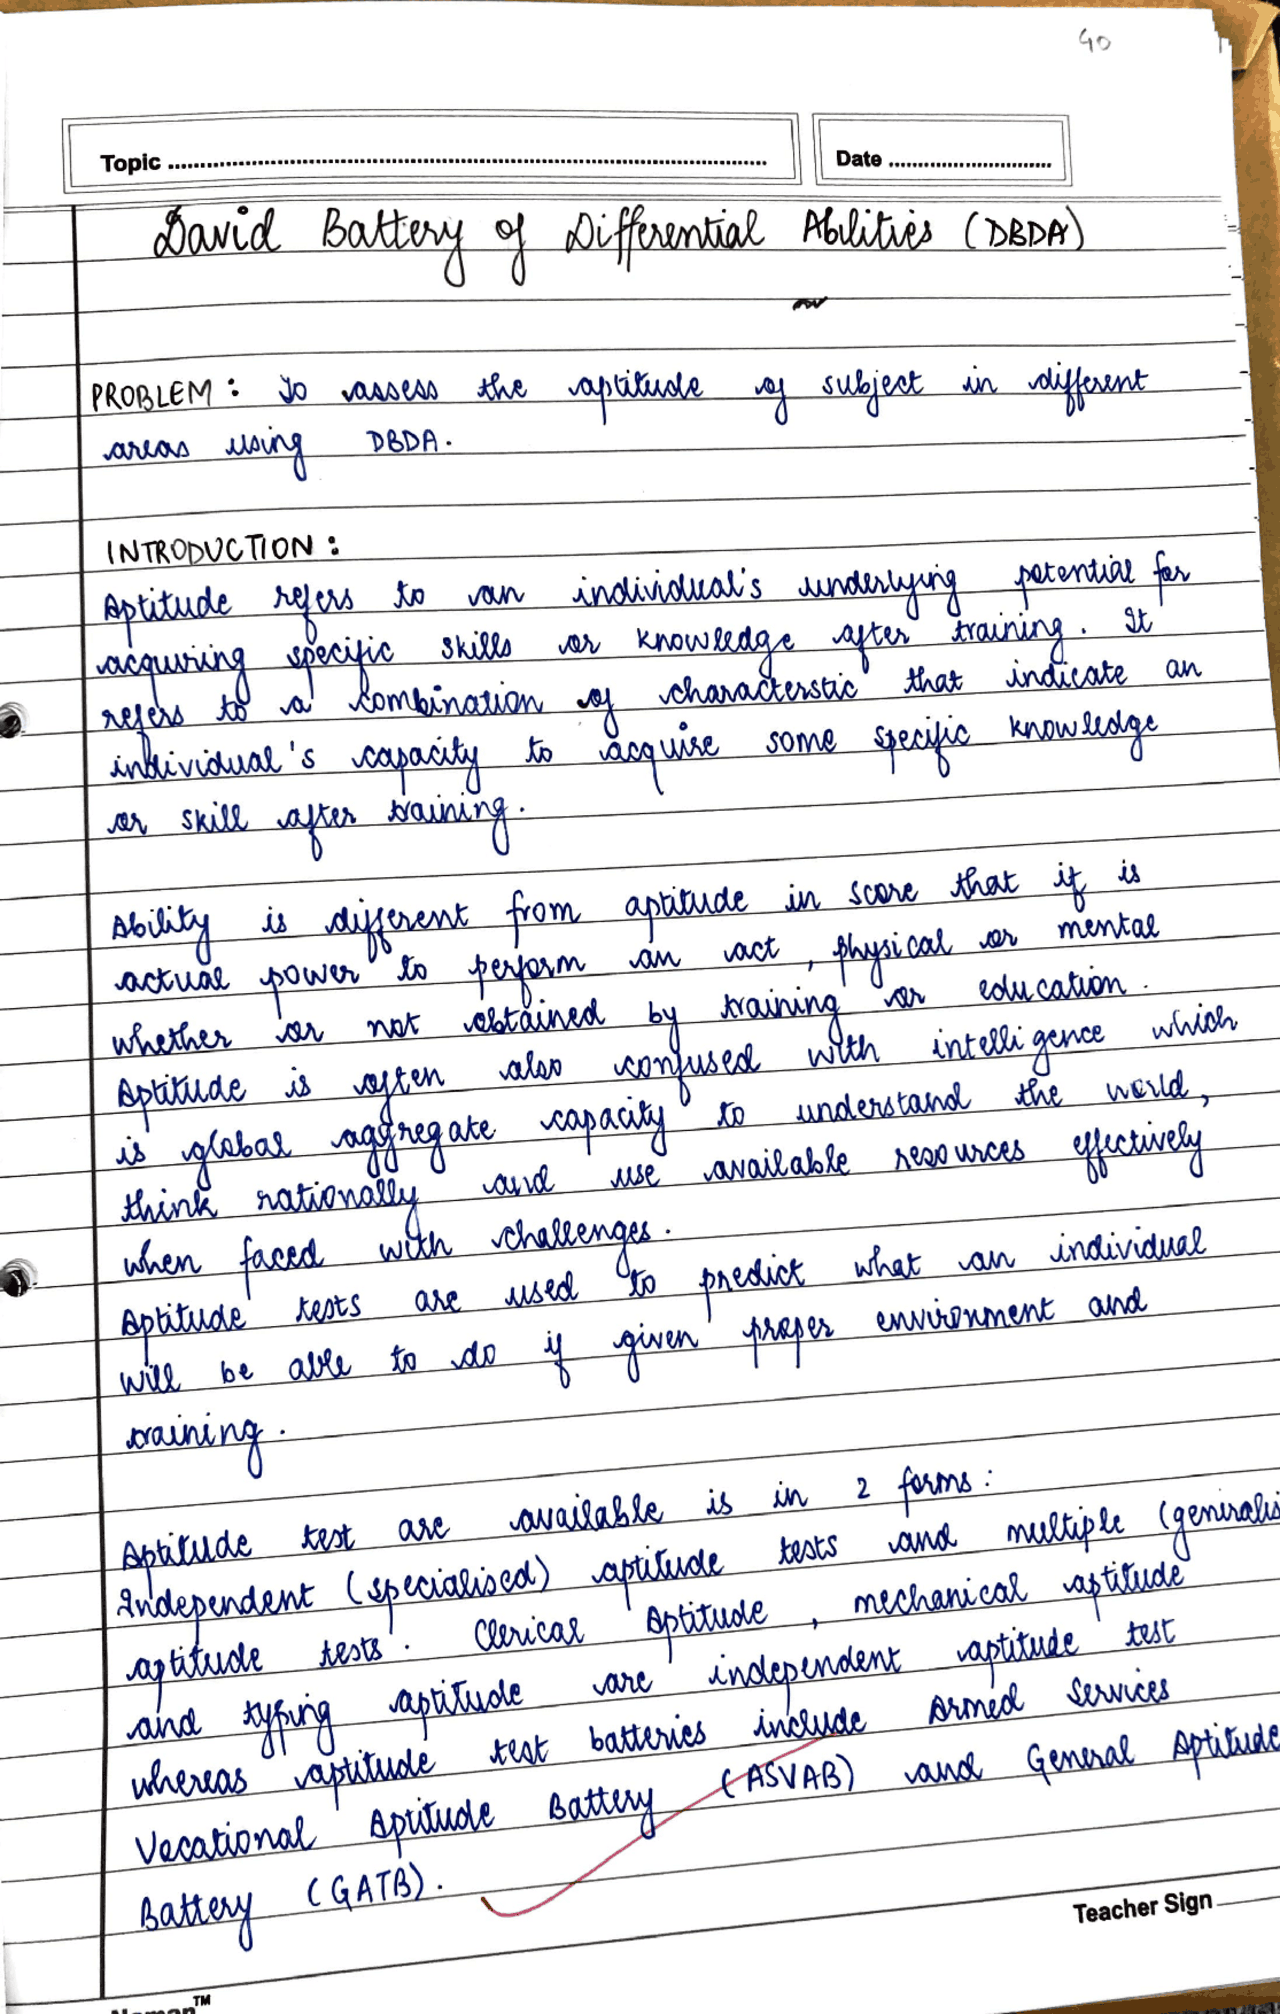 40
Topic
Date
David Battery of Differential Abilities (DBDA)
PROBLEM : To assess the aptitude of subject in different
areas using DBDA.
INTRODUCTION :
Aptitude refers to an individual's underlying potential for
acquiring specific skills or knowledge after training. It
refers to a combination of characterstic that indicate an
individual's capacity to acquire some specific knowledge
or skill after training.
Ability is different from aptitude in score that it is
actual power to perform an act, physical or mental
whether or not obtained by training or education.
Aptitude is often also confused with intelligence which
is global aggregate capacity to understand the world,
think rationally and use available resources effectively
when faced with challenges.
Aptitude tests are used to predict what an individual
will be able to do if given proper environment and
training.
Aptitude test are available is in 2 forms :
Independent (specialised) aptitude tests and multiple (generalis
aptitude tests. Clerical Aptitude, mechanical aptitude
and typing aptitude are independent aptitude test
whereas aptitude test batteries include Armed Services
Vocational Aptitude Battery (ASVAB) and General Aptitude
Battery (GATB).
Teacher Sign
TM